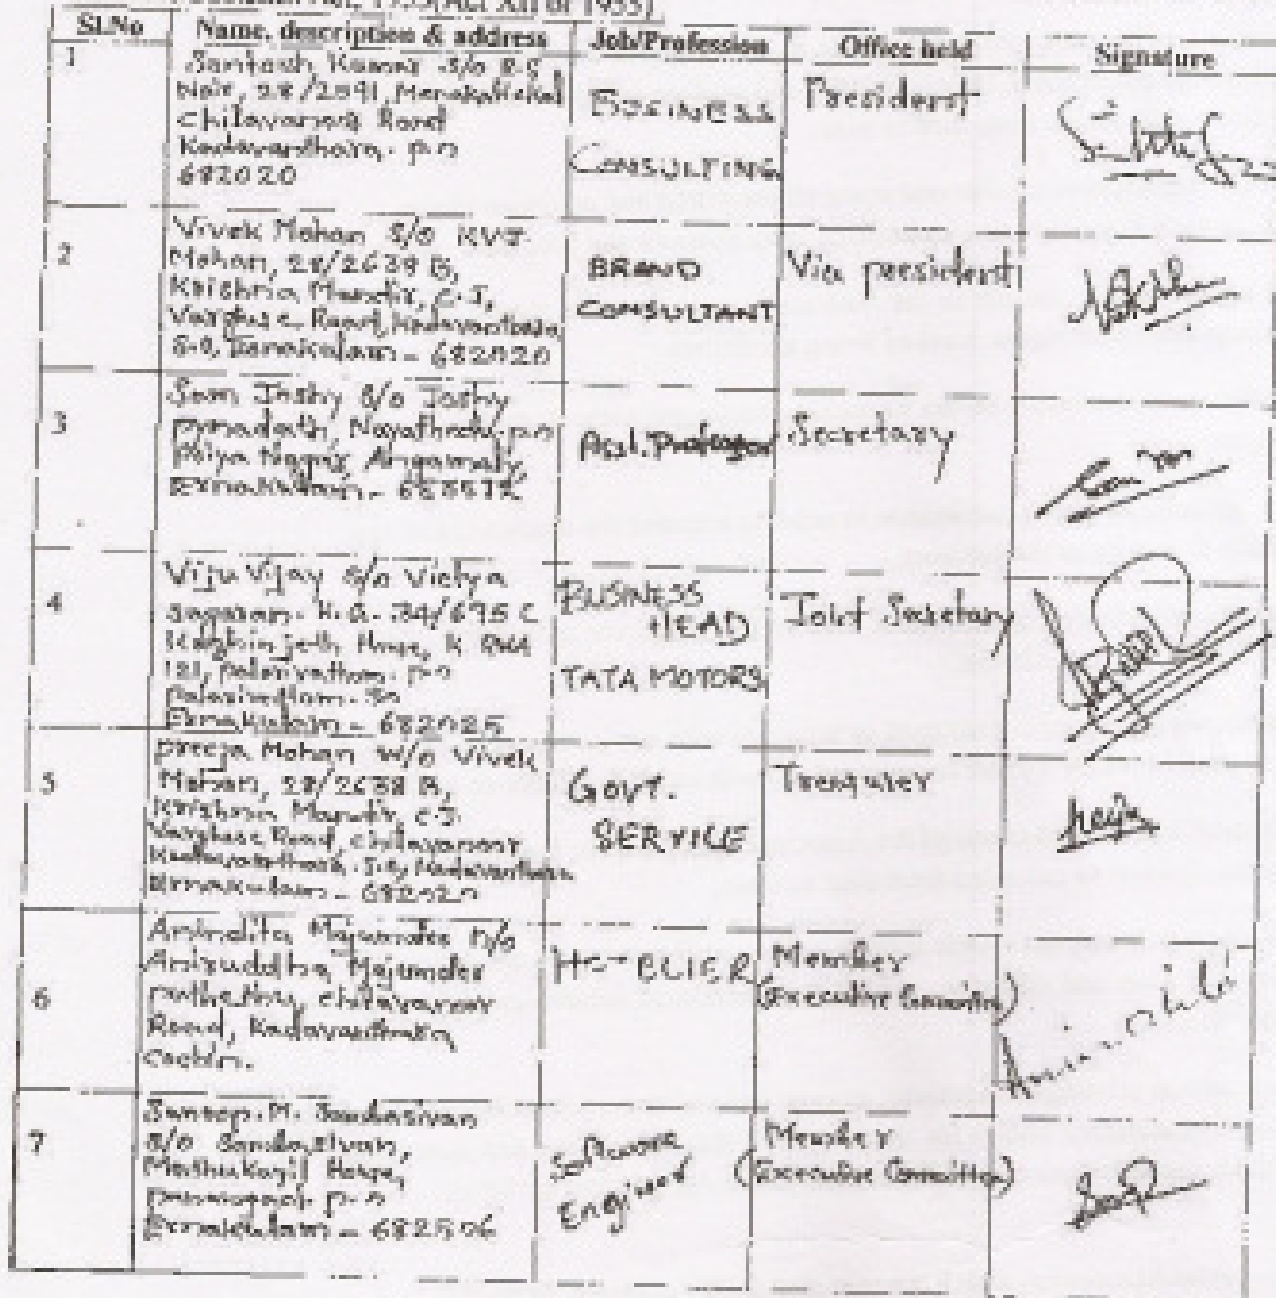 1955 (Act XII of 1955)
Sl.No Name, description & address Job/Profession Office held Signature
1
Santosh Kumar S/o R.S
Nair, 28/2091, 
Chilavanoor Road
Kadavanthara. p.o
682020
BUSINESS
CONSULTING
President
2
Vivek Mohan S/o KVJ
Mohan, 28/2638 B,
Krishna Mandir, C.J.
Varghese Road, Kadavanthara
S.O, Ernakulam - 682020
BRAND
CONSULTANT
Vice president
3
Sam Joshy S/o Joshy
p.o
Angamaly
Ernakulam -
Asst. Professor
Secretary
4
Viju Vijay S/o Vidya
sagaran. 34/695 C
House, K
121, Palarivattom. p.o
Palarivattom. So
Ernakulam - 682025
BUSINESS
HEAD
TATA MOTORS
Joint Secretary
5
Preeja Mohan W/o Vivek
Mohan, 28/2638 B,
Krishna Mandir, C.J.
Varghese Road, Chilavanoor
Kadavanthara. S.O, Kadavanthara
Ernakulam - 682020
GOVT.
SERVICE
Treasurer
Preeja
6
Anindita Majumder
Aniruddha Majumder
Chilavanoor
Road, Kadavanthara
Cochin.
HOTELIER
Member
(Executive Committee)
Anindita
7
Sadasivan
S/o Sadasivan,
House,
p.o
Ernakulam - 682506
Software
Engineer
Member
(Executive Committee)